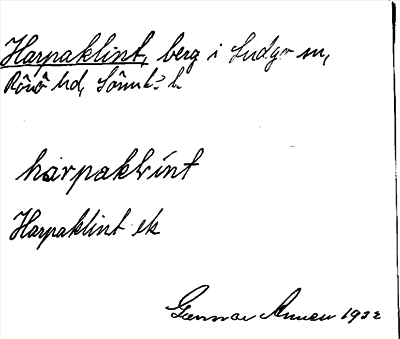 Harpaklint, berg i Ludgo sn,
Rönö hd, Sörml. l.
harpaklint
Harpaklint ek
Gunnar Annell 1932